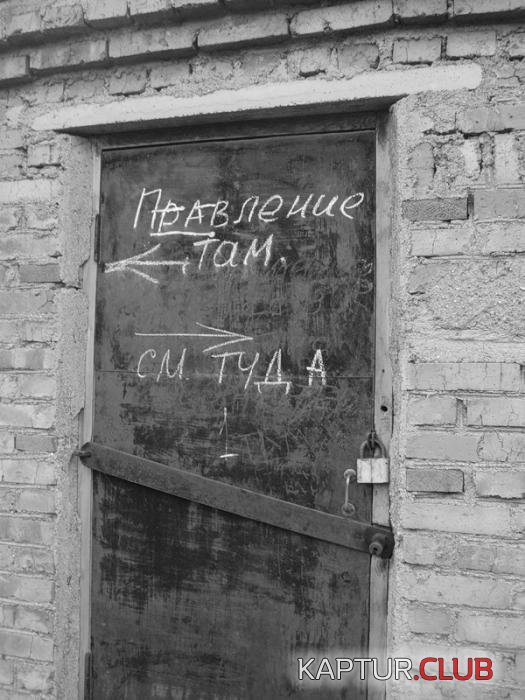 Правление
там.
см. туда
KAPTUR.CLUB